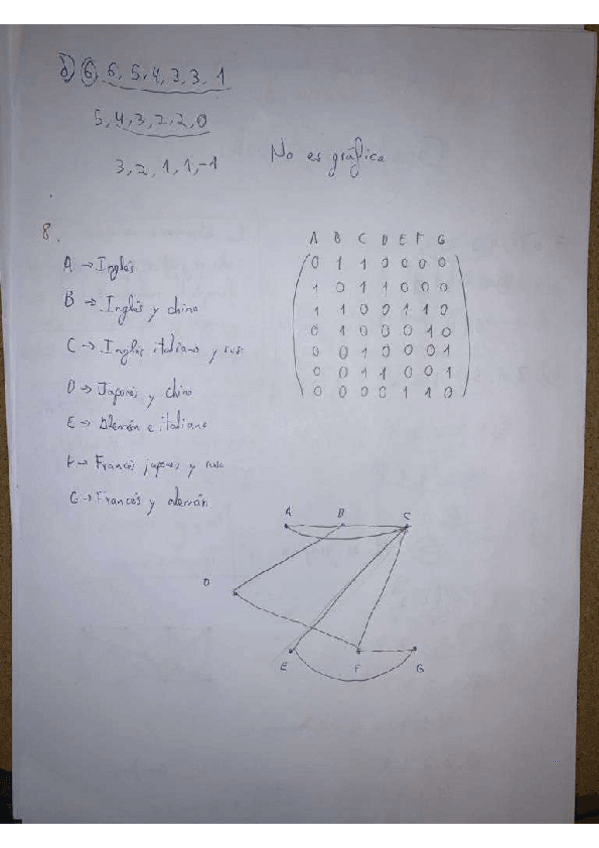 d) 6, 6, 5, 4, 3, 3, 1
5, 4, 3, 2, 2, 0
3, 2, 1, 1, -1
No es gráfica
8.
A → Inglés
B → Inglés y chino
C → Inglés italiano y ruso
D → Japonés y chino
E → Alemán e italiano
F → Francés japones y ruso
G → Francés y alemán
A B C D E F G
0 1 1 0 0 0 0
1 0 1 1 0 0 0
1 1 0 0 1 1 0
0 1 0 0 0 1 0
0 0 1 0 0 0 1
0 0 1 1 0 0 1
0 0 0 0 1 1 0
A B C
D
E F G